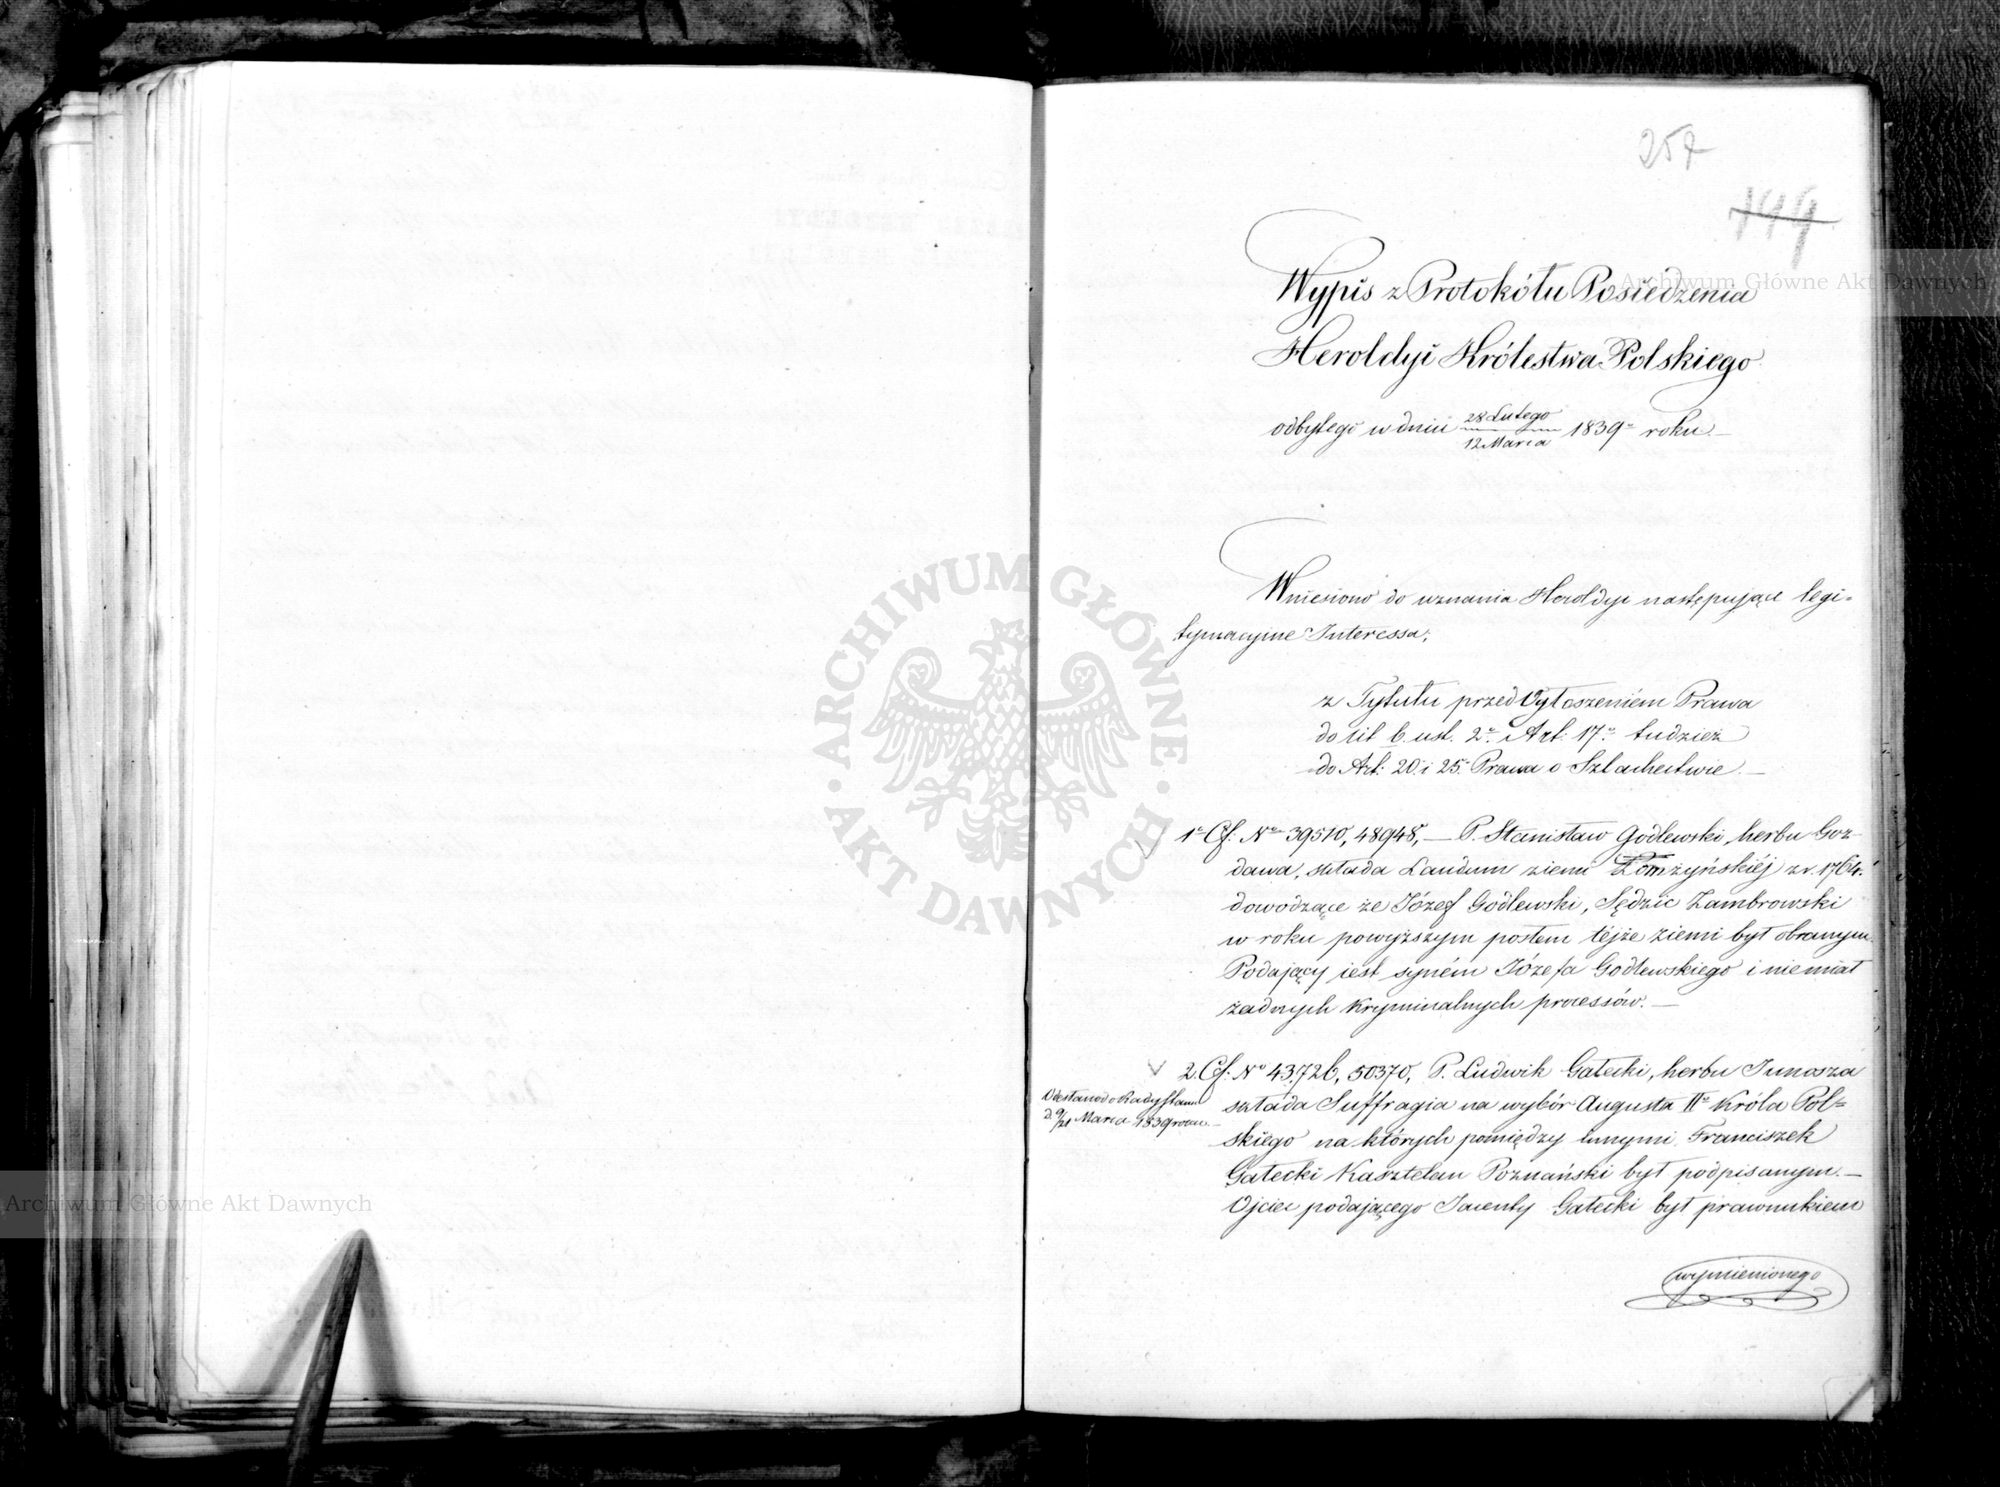 257
149
Wypis z Protokółu Posiedzenia
Heroldyi Królestwa Polskiego
odbytego w dniu 28 Lutego / 12 Marca 1839 roku.
Wniesiono do uznania Heroldyi następujące legi-
tymacyjne Interessa;
z Tytułu przed Ogłoszeniem Prawa
do lit b. ust. 2. Art. 17. tudzież
do Art. 20. i 25. Prawa o Szlachectwie. —
1. Cf. No 39510, 48948, — P. Stanisław Godlewski, herbu Goz-
dawa, składa Laudum ziemi Łomżyńskiej z r. 1764.
dowodzące że Józef Godlewski, Sędzic Zambrowski
w roku powyższym posłem téjże ziemi był obranym.
Podający iest syném Józefa Godlewskiego i nie miał
żadnych kryminalnych processów. —
2. Cf. No 43,726, 50370, P. Ludwik Gałecki, herbu Junosza
Odesłano do Rady Stanu
d. 9/21 Marca 1839 roku. —
składa Suffragia na wybór Augusta IIo Króla Pol-
skiego na których pomiędzy innymi Franciszek
Gałecki Kasztelan Poznański był podpisanym. —
Ojciec podającego Jacenty Gałecki był prawnukiem
wymienionego
Archiwum Główne Akt Dawnych
Archiwum Główne Akt Dawnych
ARCHIWUM GŁÓWNE AKT DAWNYCH